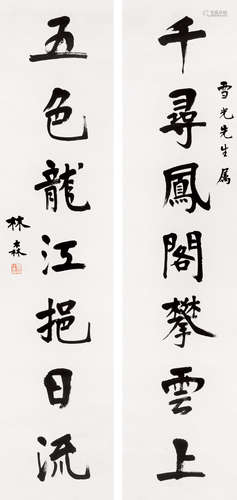 千尋鳳閣攀雲上
雪光先生属
五色龍江挹日流
林森